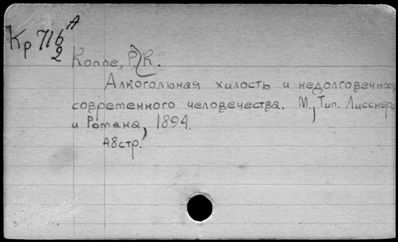 Кр 716 А
2
Коппе, Р. К.
Алкогольная хилость и недолговечнос
современного человечества. М., Тип. Лисснера
и Романа, 1894.
48стр.